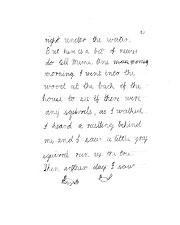 right under the water.
But here is a bit of news
to tell Mama. One
morning I went into the
wood at the back of the
house to see if there were
any squirrels, as I walked
I heard a rustling behind
me and I saw a little grey
squirrel run up the tree.
Then another day I saw